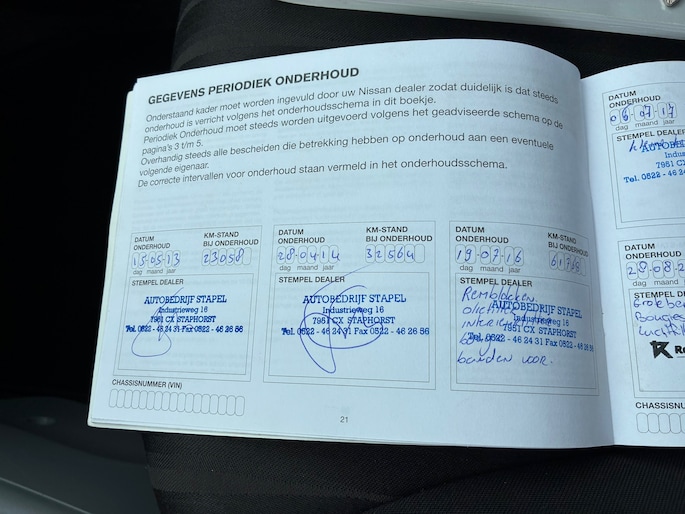 GEGEVENS PERIODIEK ONDERHOUD
Onderstaand kader moet worden ingevuld door uw Nissan dealer zodat duidelijk is dat steeds
onderhoud is verricht volgens het onderhoudsschema in dit boekje.
Periodiek Onderhoud moet steeds worden uitgevoerd volgens het geadviseerde schema op de
pagina's 3 t/m 5.
Overhandig steeds alle bescheiden die betrekking hebben op onderhoud aan een eventuele
volgende eigenaar.
De correcte intervallen voor onderhoud staan vermeld in het onderhoudsschema.
DATUM ONDERHOUD
KM-STAND BIJ ONDERHOUD
15-05-13
23058
dag maand jaar
STEMPEL DEALER
AUTOBEDRIJF STAPEL
Industrieweg 16
7951 CX STAPHORST
Tel. 0522 - 46 24 31 Fax 0522 - 46 26 56
CHASSISNUMMER (VIN)
DATUM ONDERHOUD
KM-STAND BIJ ONDERHOUD
28-04-14
32564
dag maand jaar
STEMPEL DEALER
AUTOBEDRIJF STAPEL
Industrieweg 16
7951 CX STAPHORST
Tel. 0522 - 46 24 31 Fax 0522 - 46 26 56
DATUM ONDERHOUD
KM-STAND BIJ ONDERHOUD
19-07-16
dag maand jaar
STEMPEL DEALER
Remblokken
AUTOBEDRIJF STAPEL
Industrieweg 16
7951 CX STAPHORST
Tel. 0522 - 46 24 31 Fax 0522 - 46 26 56
banden voor.
21
DATUM
ONDERHOUD
06-07-17
dag maand jaar
STEMPEL DEALER
Industri
7951 CX
Tel. 0522 - 46 24
DATUM
ONDERHOUD
28-08-2
dag maand
STEMPEL D
Bougies
CHASSISNU